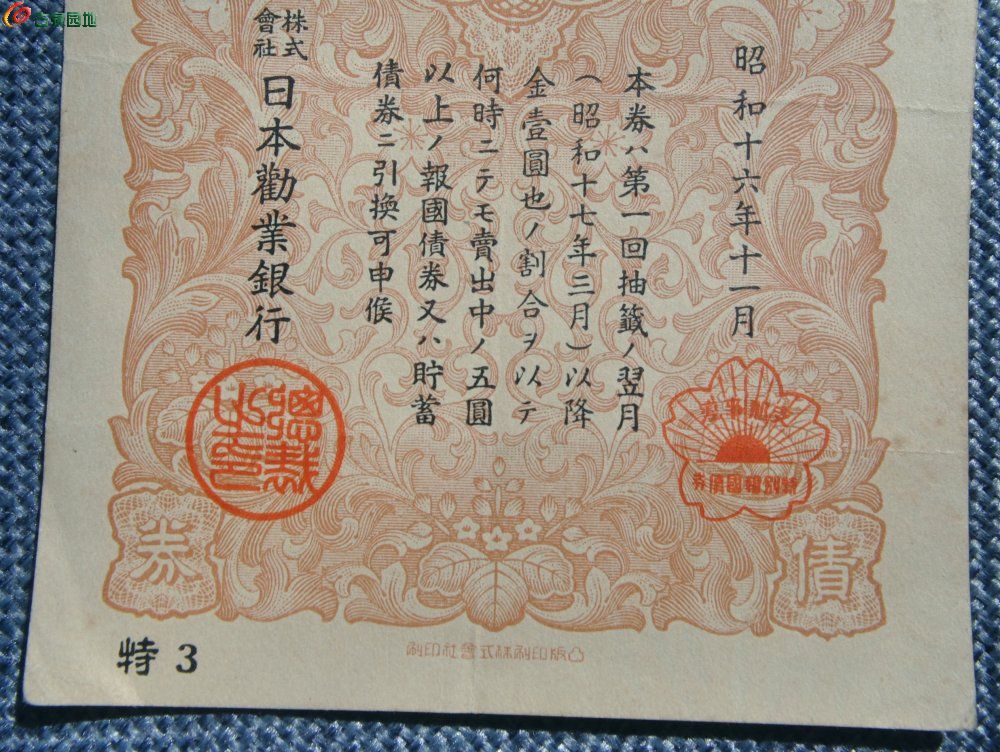 昭和十六年十一月
本券ハ第一回抽籤ノ翌月
(昭和十七年三月)以降
金壹圓也ノ割合ヲ以テ
何時ニテモ賣出中ノ五圓
以上ノ報國債券又ハ貯蓄
債券ニ引換可申候
株式
會社
日本勸業銀行
總裁
之印
特別報國債券
債
券
特3
凸版印刷株式會社印刷